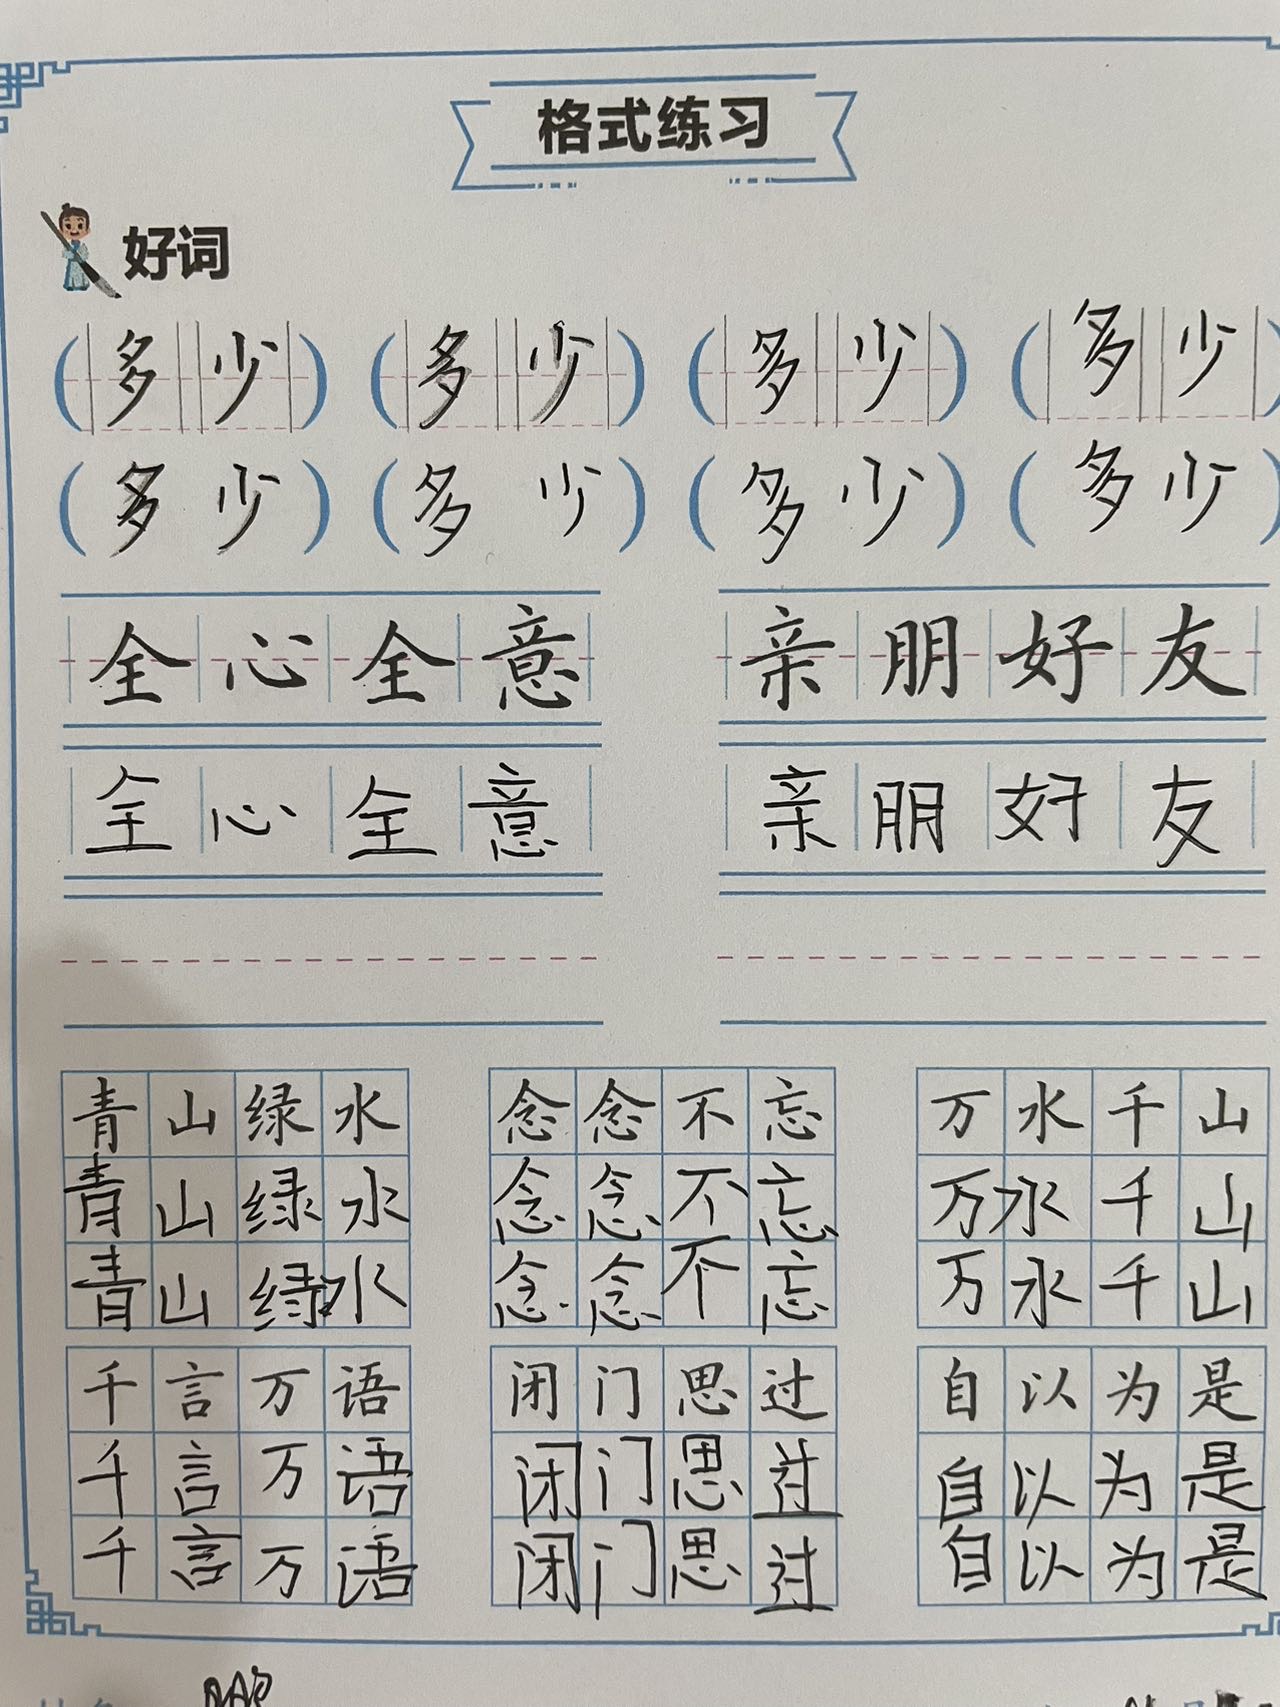 格式练习
好词
(多少) (多少) (多少) (多少)
(多少) (多少) (多少) (多少)
全心全意 亲朋好友
全心全意 亲朋好友
青山绿水 念念不忘 万水千山
青山绿水 念念不忘 万水千山
青山绿水 念念不忘 万水千山
千言万语 闭门思过 自以为是
千言万语 闭门思过 自以为是
千言万语 闭门思过 自以为是